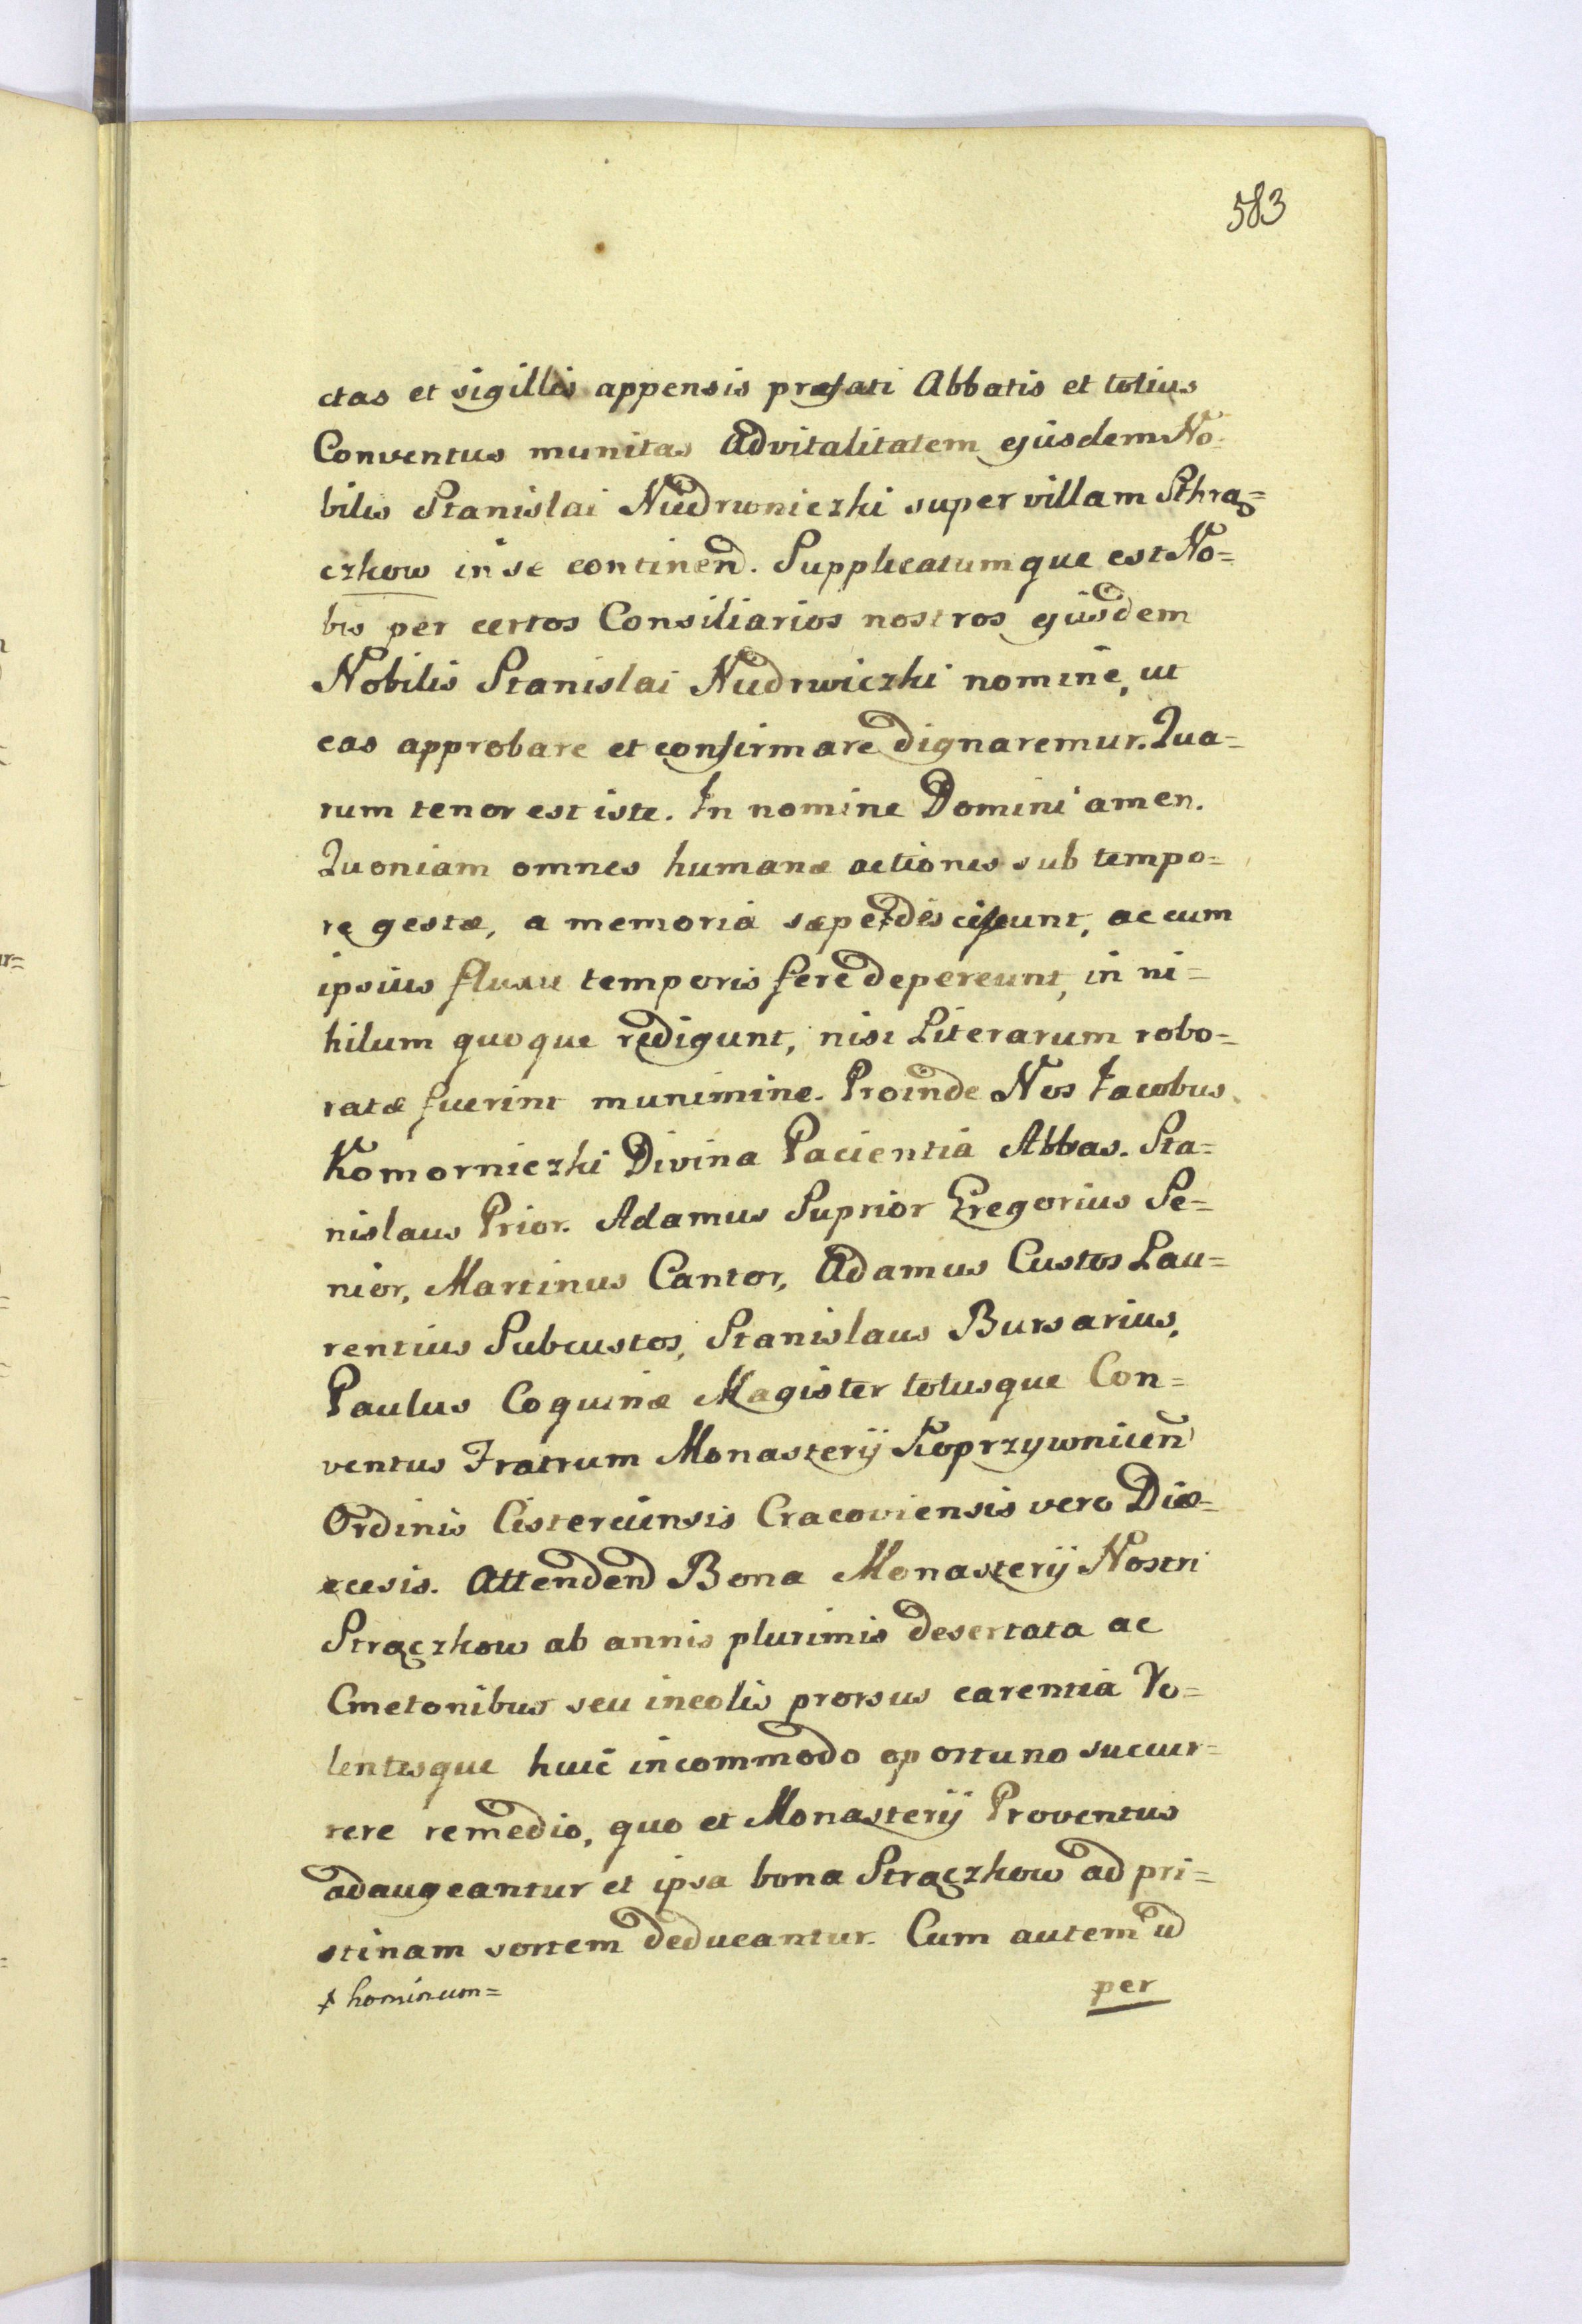 583
ctas et sigillis appensis præfati Abbatis et totius
Conventus munitas Advitalitatem ejusdem No-
bilis Stanislai Nudrwniczki super villam Sthrą=
czkow in se continen̄d. Supplicatumque est No=
bis per certos Consiliarios nostros ejusdem
Nobilis Stanislai Nudrwiczki nomine, ut
eas approbare et confirmare dignaremur. Qua=
rum tenor est iste. In nomine Domini amen.
Quoniam omnes humanæ actiones sub tempo=
re gestæ, a memoria sæpe + discifcunt, ac cum
ipsius fluxu temporis fere depereunt, in ni=
hilum quoque redigunt, nisi Literarum robo=
ratæ fuerint munimine. Proinde Nos Jacobus
Komorniczki Divina Pacientia Abbas. Sta=
nislaus Prior. Adamus Suprior Gregorius Se=
nior, Martinus Cantor, Adamus Custos Lau=
rentius Subcustos, Stanislaus Bursarius,
Paulus Coquinæ Magister totusque Con=
ventus Fratrum Monasterij Koprzywnicen̄
Ordinis Cisterciensis Cracoviensis vero Diæ=
cesis. Attendend Bona Monasterij Nostri
Strączkow ab annis plurimis desertata ac
Cmetonibus seu incolis prorsus carentia Vo=
lentesque huic incommodo oportuno succur=
rere remedio, quo et Monasterij Proventus
adaugeantur et ipsa bona Strączkow ad pri=
stinam sortem deducantur. Cum autem id
+ hominum=
per